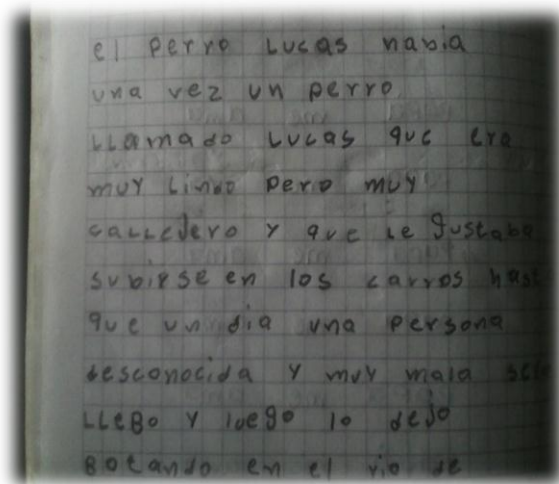 el perro Lucas habia
una vez un perro
LLamado Lucas que era
muy Lindo pero muy
caLLeJero y que le gustaba
subirse en los carros hast
que un dia una persona
desconocida y muy mala
LLego y luego lo dejo
botando en el rio de